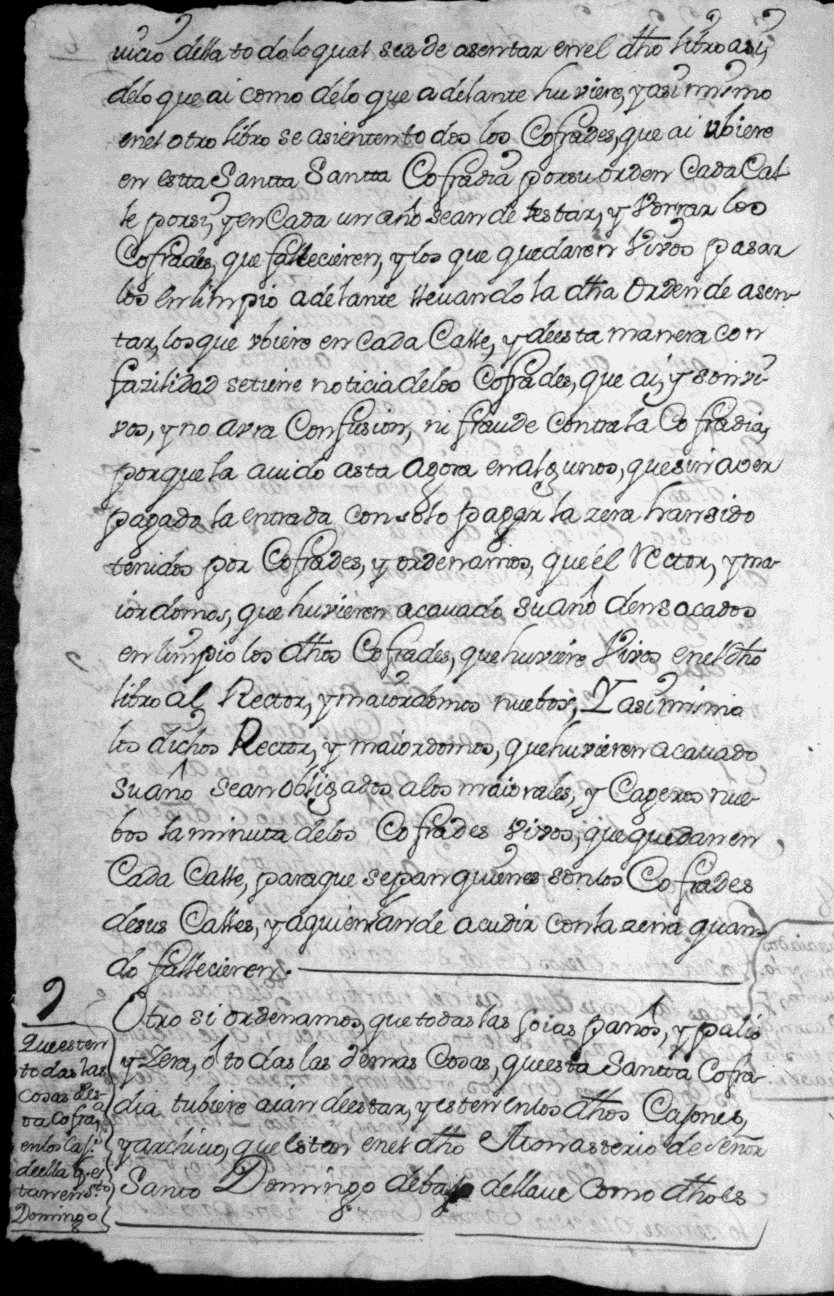 uicio della todo lo qual sea de asentar en el dho libro asi,
de lo que ai como de lo que adelante huviere, y asi mismo
en el otro libro se asienten todos los Cofrades, que ai ubiere
en estta Santta Santta Cofradia por su orden Cada Cal-
le por si, y en Cada un año sean de testar, y Vorrar los
Cofrades, que fallecieren, y los que quedaren Vivos pasar
los en limpio adelante llevando la dha Orden de asen-
tar, los que vbiere en Cada Calle, y deesta manera con
fazilidad se tiene noticia de los Cofrades, que ai, y son vi-
vos, y no avra Confusion, ni fraude contra la Cofradia,
porque la auido asta Agora en algunos, que sin aver
pagado la entrada con solo pagar la zera han sido
tenidos por Cofrades, y ordenamos, que el Rector, y ma-
iordomos, que huvieren acauado su año den sacados
en limpio los dhos Cofrades, que huviere Vivos en el dho
libro al Rector, y maiordomos nuebos, Y asi mismo
los dichos Rector, y maiordomos, que huvieren acauado
su año sean obligados a los maiorales, y Cageros nue-
bos la minuta de los Cofrades vivos, que quedan en
Cada Calle, para que sepan quienes son los Cofrades
de sus Calles, y a quien han de acudir con la zeria quan-
do fallecieren.
9
Que esten
todas las
Cosas des-
ta Cofra.ª
en los Caj.s
de ella q. es
tan en S.to
Domingo
Otro si ordenamos, que todas las Joias paños, y palio
y Zera, ó todas las demas Cosas, que esta Santta Cofra-
dia tubiere aian de estar, y esten en los dhos Cajones,
y archiuo, que esten en el dho Monasterio de Señor
Santo Domingo debajo de llaue Como dho es